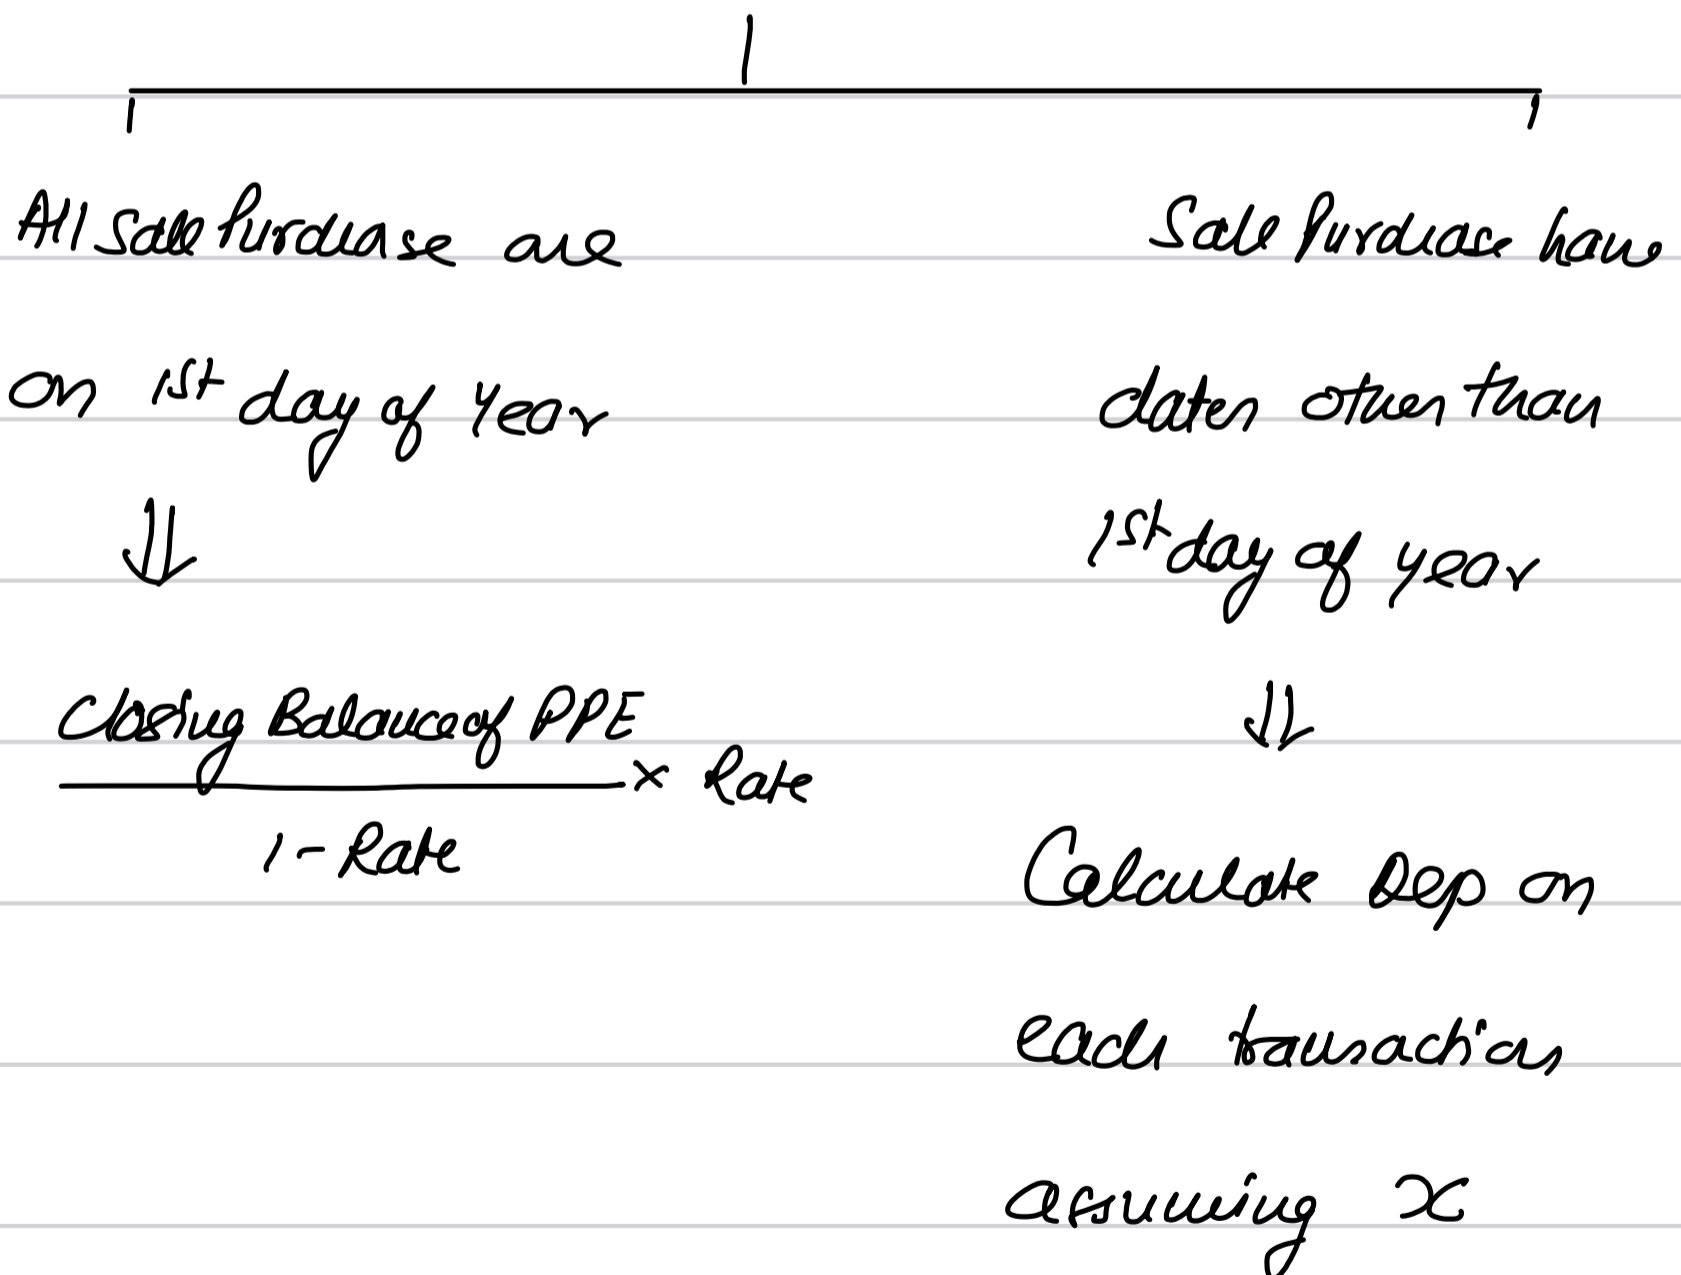 All Sale Purchase are
on 1st day of year
⇓
Closing Balance of PPE
× Rate
1 - Rate
Sale Purchase have
dates other than
1st day of year
⇓
Calculate Dep on
each transaction
assuming x